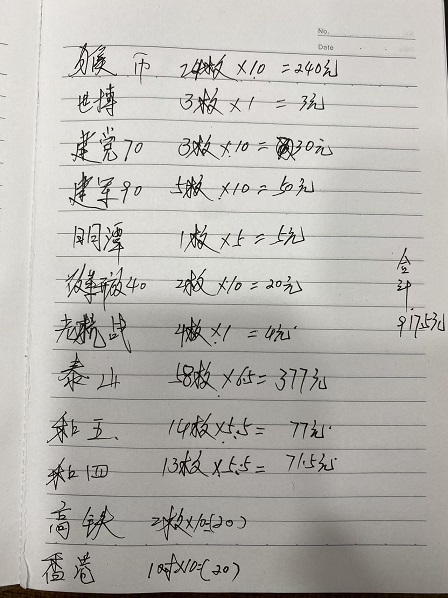 No.
Date
猴币 24枚×10=240元
世博 3枚×1=3元
建党70 3枚×10=30元
建军90 5枚×10=50元
日月潭 1枚×5=5元
改革开放40 2枚×10=20元
老抗战 4枚×1=4元
泰山 58枚×6.5=377元
和五 14枚×5.5=77元
和四 13枚×5.5=71.5元
高铁 2枚×10=(20)
香港 1对×10=(20)
合计
917.5元